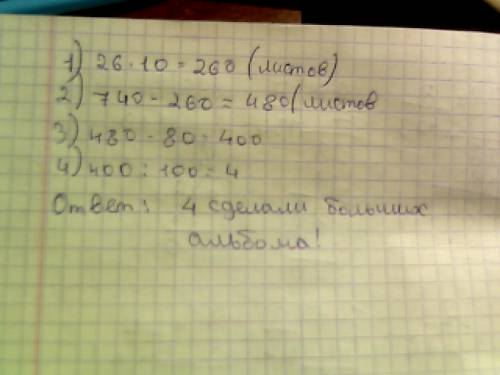 1) 26·10=260 (листов)
2) 740-260=480(листов
3) 480-80=400
4) 400:100=4
Ответ: 4 сделали больших
альбома!